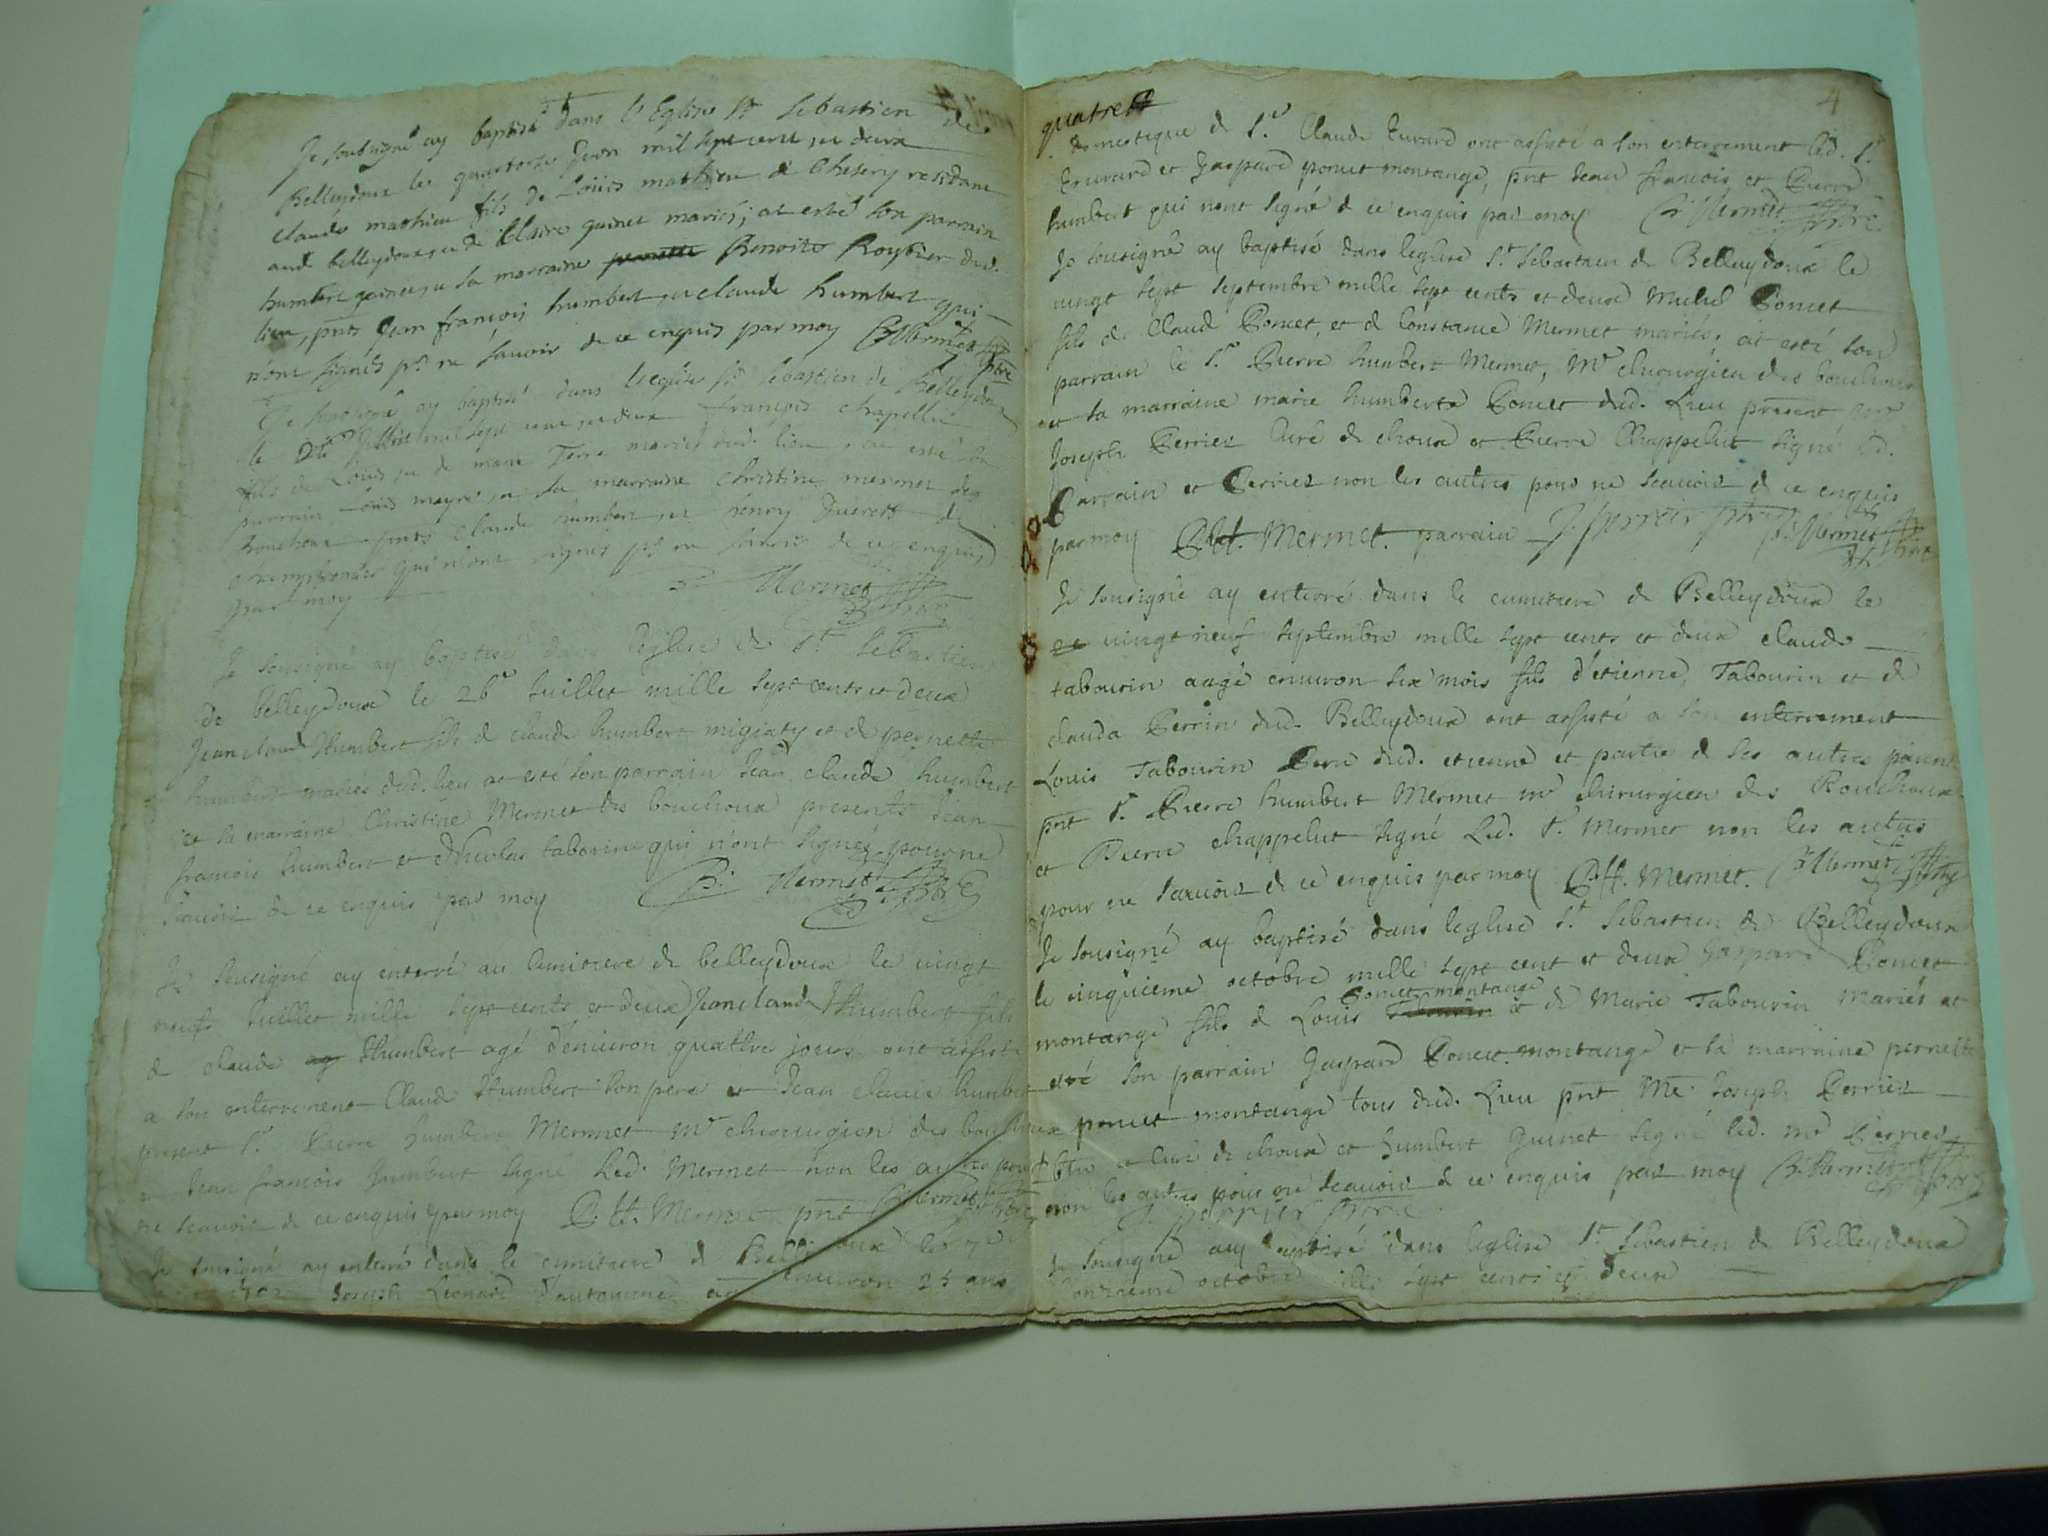 Je soubsigné ay baptisé dans l'Eglise St Sebastien de
Belleydoux le quatorse Juin mil sept cent et deux
claude mathieu fils de Loüis mathieu de Chesery residant
aud. belleydoux et de Claire guinet mariés; at esté son parrain
humbert guinet et sa marraine Benoite Roybier dud.
lieu, pnts Jean françois humbert et claude humbert qui
n'ont signés pr ne scavoir de ce enquis par moy Mermet ptre
Je soubsigné ay baptisé dans l'eglise St Sebastien de Belleydoux
le Juillet mil sept cent et deux françois chapellu
fils de Loüis et de marie Terre mariés dud. lieu, at esté son
parrain Loüis et sa marraine Christine mermet des
bouchoux pnts Claude humbert et henry
qui n'ont signés pr ne scavoir de ce enquis
par moy Mermet ptre
Je sousigné ay baptisé dans l'eglise de St Sebastien
de belleydoux le 26e Juillet mille sept cents et deux
Jean claude Humbert fils de claude humbert migiaty et de pernette
humbert mariés dud. lieu at esté son parrain Jean claude humbert
et sa marraine Christine Mermet des bouchoux presents Jean
francois humbert et Nicolas tabourin qui n'ont signés pour ne
scavoir de ce enquis par moy Mermet ptre
Je sousigné ay enterré au cimitiere de belleydoux le vingt
neuf Juillet mille sept cents et deux Jean claude Humbert fils
de claude Humbert agé d'environ quattre jours ont assisté
a son enterrement Claude Humbert son pere et Jean claude humbert
present Sr Pierre humbert Mermet mr chirurgien des bouchoux
et Jean francois humbert signé led. Mermet non les autres pour
ne scavoir de ce enquis par moy P. H. Mermet pnt Mermet ptre
Je sousigné ay enterré dans le cimitiere de Belleydoux le 7e
Joseph Léonard d'automne agé environ 25 ans
quatre
4
domestique de Sr Claude Evrard ont assisté a son enterrement led. Sr
Evrard et Gaspard poncet montange, pnt Jean francois et Pierre
humbert qui n'ont signé de ce enquis par moy Mermet ptre
Je sousigné ay baptisé dans leglise St Sebastien de Belleydoux le
vingt sept septembre mille sept cents et deux Michel Poncet
fils de Claud Poncet et de Constance Mermet mariés. at esté son
parrain le Sr Pierre humbert Mermet, Mr chirurgien des bouchoux
et sa marraine marie humberte Poncet dud. Lieu present
Joseph Perrier Curé de choux et Pierre Chappelut signé led.
Parrain et Perrier non les autres pour ne scavoir de ce enquis
par moy P. H. Mermet parrain J. Perrier ptre Mermet ptre
Je sousigné ay enterré dans le cimitiere de Belleydoux le
vingt neuf septembre mille sept cents et deux claude
tabourin aagé environ six mois fils d'étienne Tabourin et de
clauda Perrin dud. Belleydoux ont assisté a son enterrement
Louis Tabourin Pere dud. etienne et partie de ses autres parents
pnt Sr Pierre humbert Mermet mr chirurgien des Bouchoux
et Pierre chappelut signé Led. Sr Mermet non les autres
pour ne scavoir de ce enquis par moy P. H. Mermet. Mermet ptre
Je sousigné ay baptisé dans leglise St Sebastien de Belleydoux
le cinquieme octobre mille sept cent et deux Gaspard Poncet
montange fils de Louis Poncet montange et de Marie Tabourin Mariés at
esté son parrain Gaspard Poncet montange et sa marraine pernette
poncet montange tous dud. Lieu pnt Me Joseph Perrier
ptre et curé de choux et humbert Guinet signé led. mr Perrier
non les autres pour ne scavoir de ce enquis par moy Mermet ptre
J. Perrier ptre
Je sousigné ay baptisé dans leglise St Sebastien de Belleydoux
onzieme octobre mille sept cents et deux